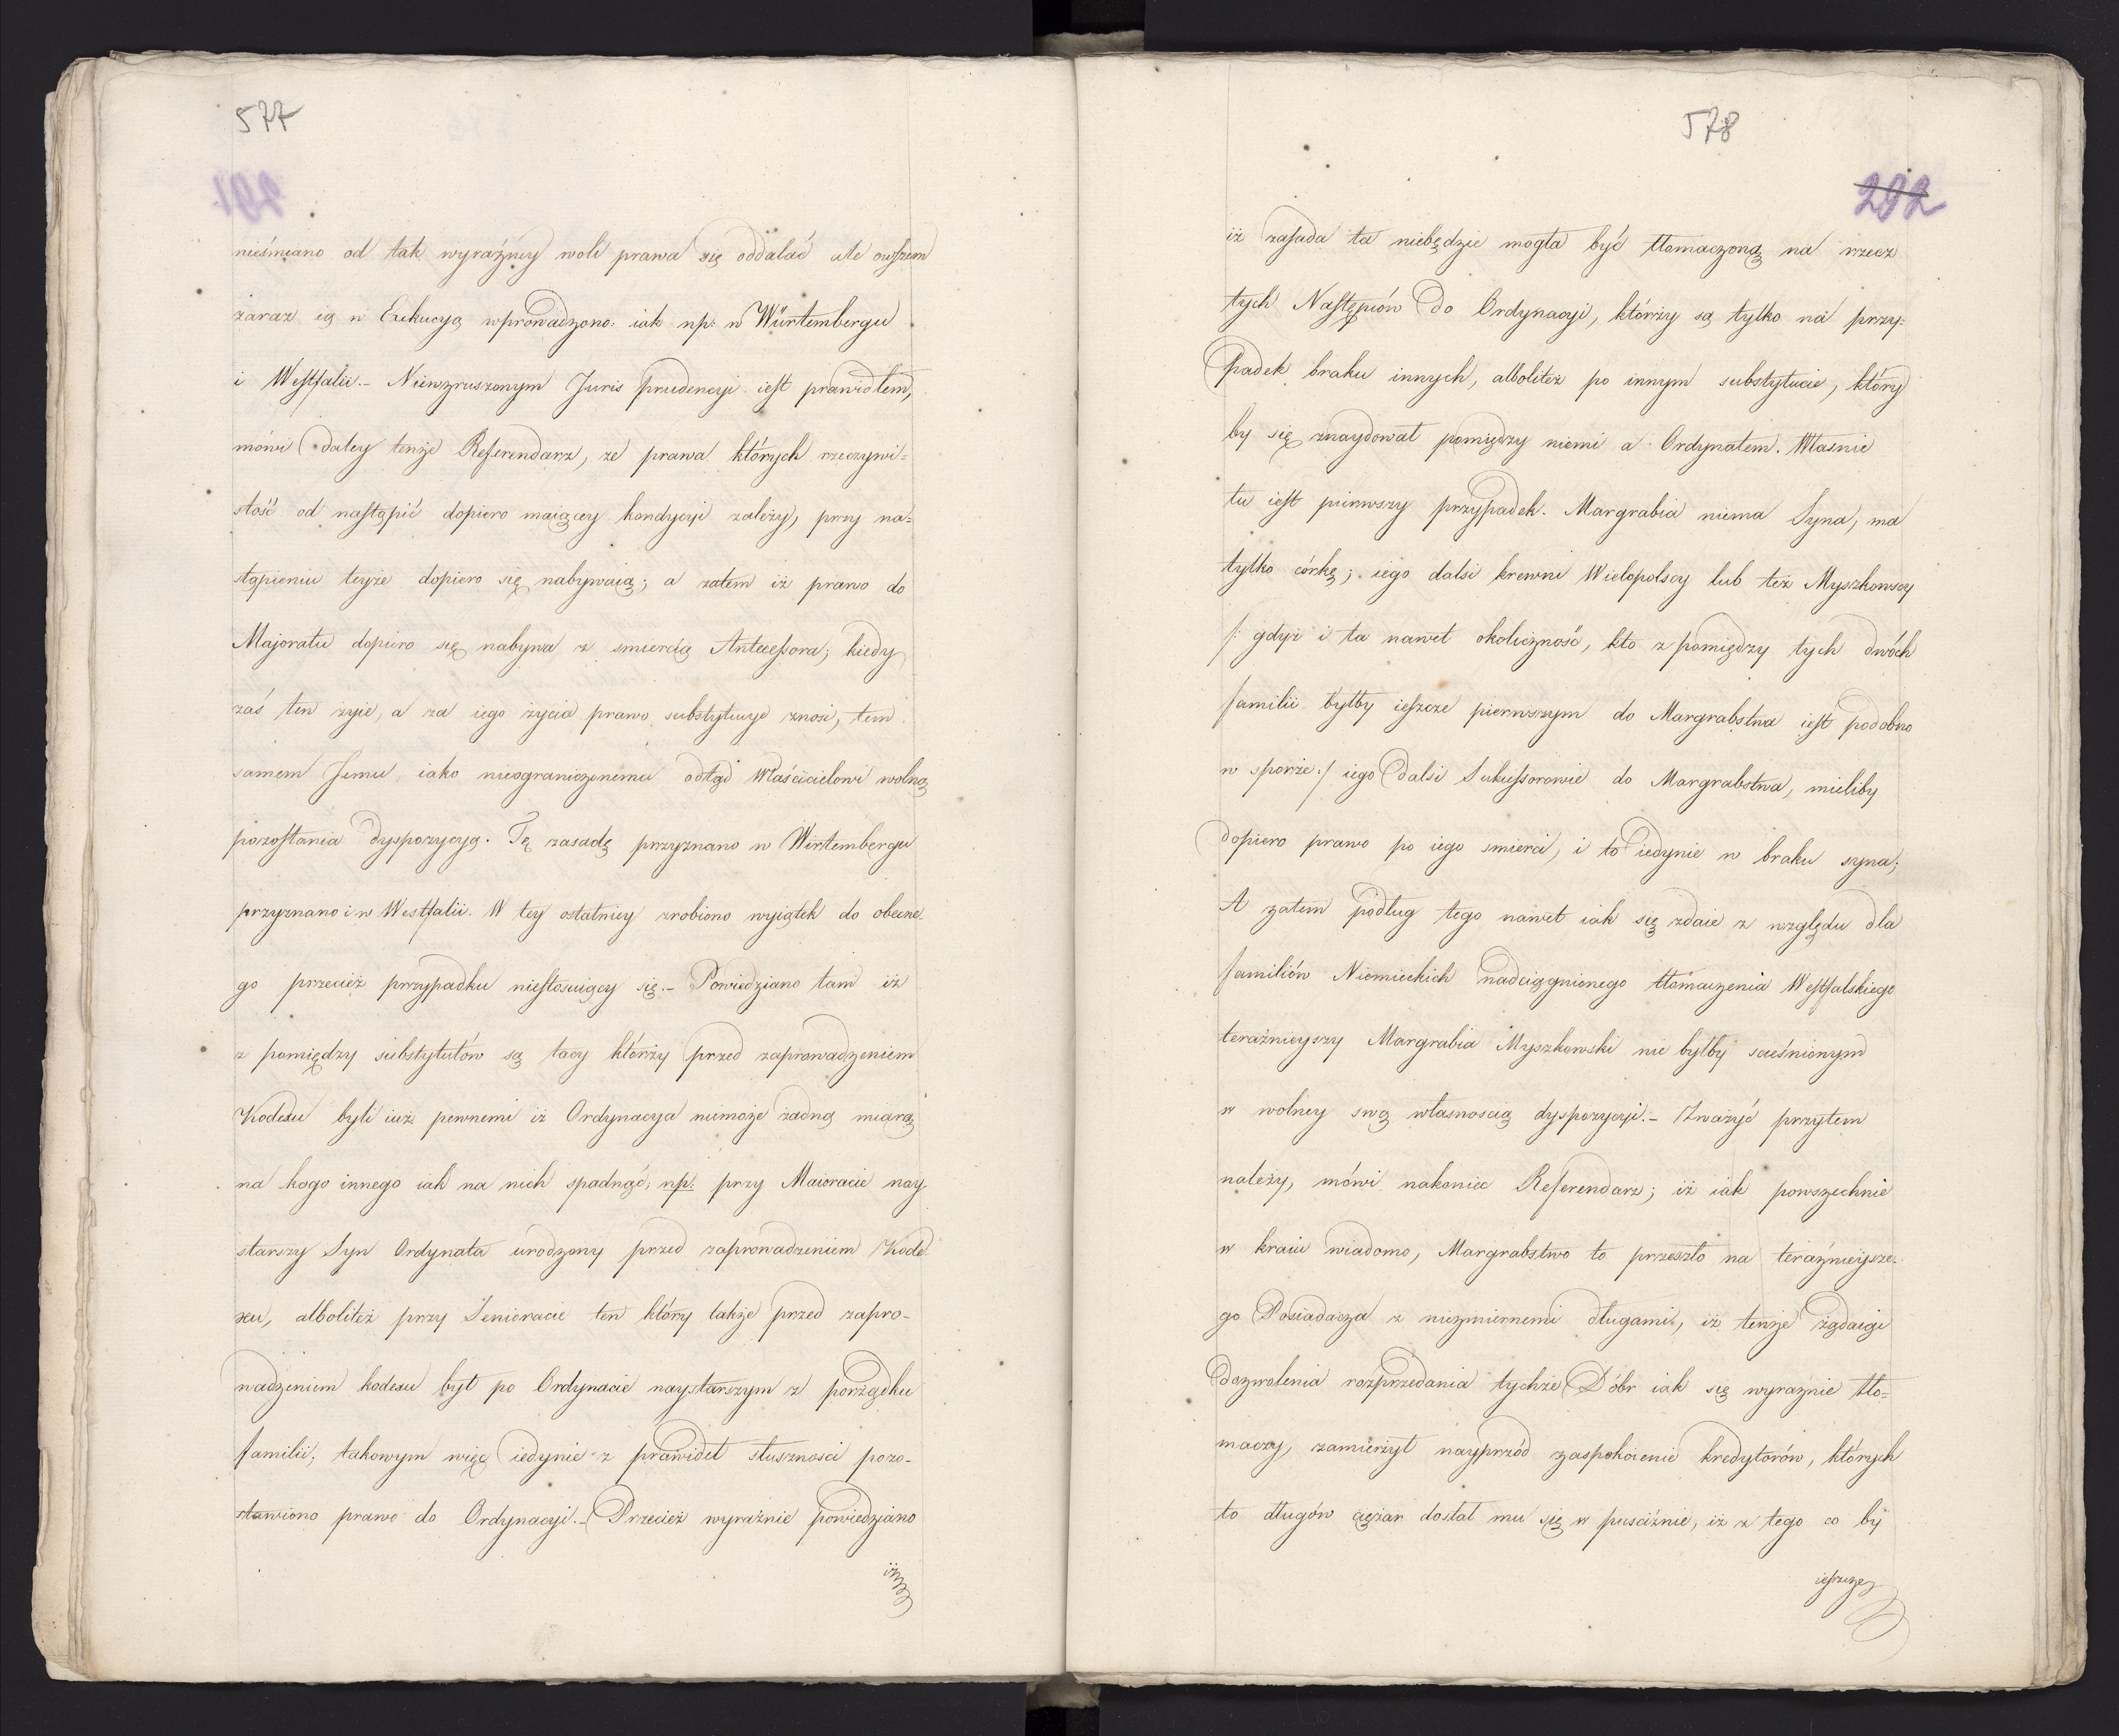 577
291.
nieśmiano od tak wyraźney woli prawa się oddalać ale owszem
zaraz ią w Exekucyą wprowadzono. iak np: w Würtembergu
i Westfalii.- Niewzruszonym Juris prudencyi iest prawidłem,
mówi daley tenże Referendarz, że prawa których rzeczywi=
stość od nastąpić dopiero maiącey kondycyi zależy, przy na=
stąpieniu teyże dopiero się nabywaią; a zatem iż prawo do
Majoratu dopiero się nabywa z smiercią Antecessora; kiedy
zaś ten żyie, a za iego życia prawo substytucye znosi, tem
samem Jemu, iako nieograniczonemu odtąd Właścicielowi wolną
pozostania dyspozycyą. Tę zasadę przyznano w Wirtembergu
przyznano i w Westfalii. W tey ostatniey zrobiono wyiątek do obecne.
go przecież przypadku niestosuiący się.- Powiedziano tam iż
z pomiędzy substytutów są tacy którzy przed zaprowadzeniem
Kodexu byli iuż pewnemi iż Ordynacya niemoże żadną miarą
na kogo innego iak na nich spadnąć; np. przy Maioracie nay
starszy Syn Ordynata urodzony przed zaprowadzeniem Kode
xu, albolitéz przy Senioracie ten który także przed zapro-
wadzeniem kodexu był po Ordynacie naystarszym z porządku
familii; takowym więc iedynie z prawideł słusznosci pozo-
stawiono prawo do Ordynacyi.- Przecież wyraźnie powiedziano
iż
578
292
iż zasada ta niebędzie mogła być tłomaczoną na rzecz
tych Następców do Ordynacyi, którzy są tylko na przy=
padek braku innych, albolitéz po innym substytucie, który
by się znaydował pomiędzy niemi a Ordynatem. Własnie
tu iest pierwszy przypadek. Margrabia niema Syna, ma
tylko córkę; iego dalsi krewni Wielopolscy lub też Myszkowscy
/: gdyż i ta nawet okoliczność, kto z pomiędzy tych dwóch
familii byłby ieszcze pierwszym do Margrabstwa iest podobno
w sporze :/ iego dalsi Sukessorowie do Margrabstwa, mieliby
dopiero prawo po iego smierci, i to iedynie w braku syna;
A zatem podług tego nawet iak się zdaie z względu dla
familiów Niemieckich nadciągnionego tłómaczenia Westfalskiego
teraźnieyszy Margrabia Myszkowski nie byłby scieśnionym
w wolney swą własnoscią dyspozycyi.- Zważyć przytem
należy, mówi nakoniec Referendarz; iż iak powszechnie
w kraiu wiadomo, Margrabstwo to przeszło na teraźnieysze.
go Posiadacza z niezmiernemi długami, iż tenże żądaiąc
dozwolenia rozprzedania tychże Dóbr iak się wyraźnie tło=
maczy, zamierzył nayprzód zaspokoienie kredytorów, których
to długów ciężar dostał mu się w pusciźnie, iż z tego co by
ieszcze